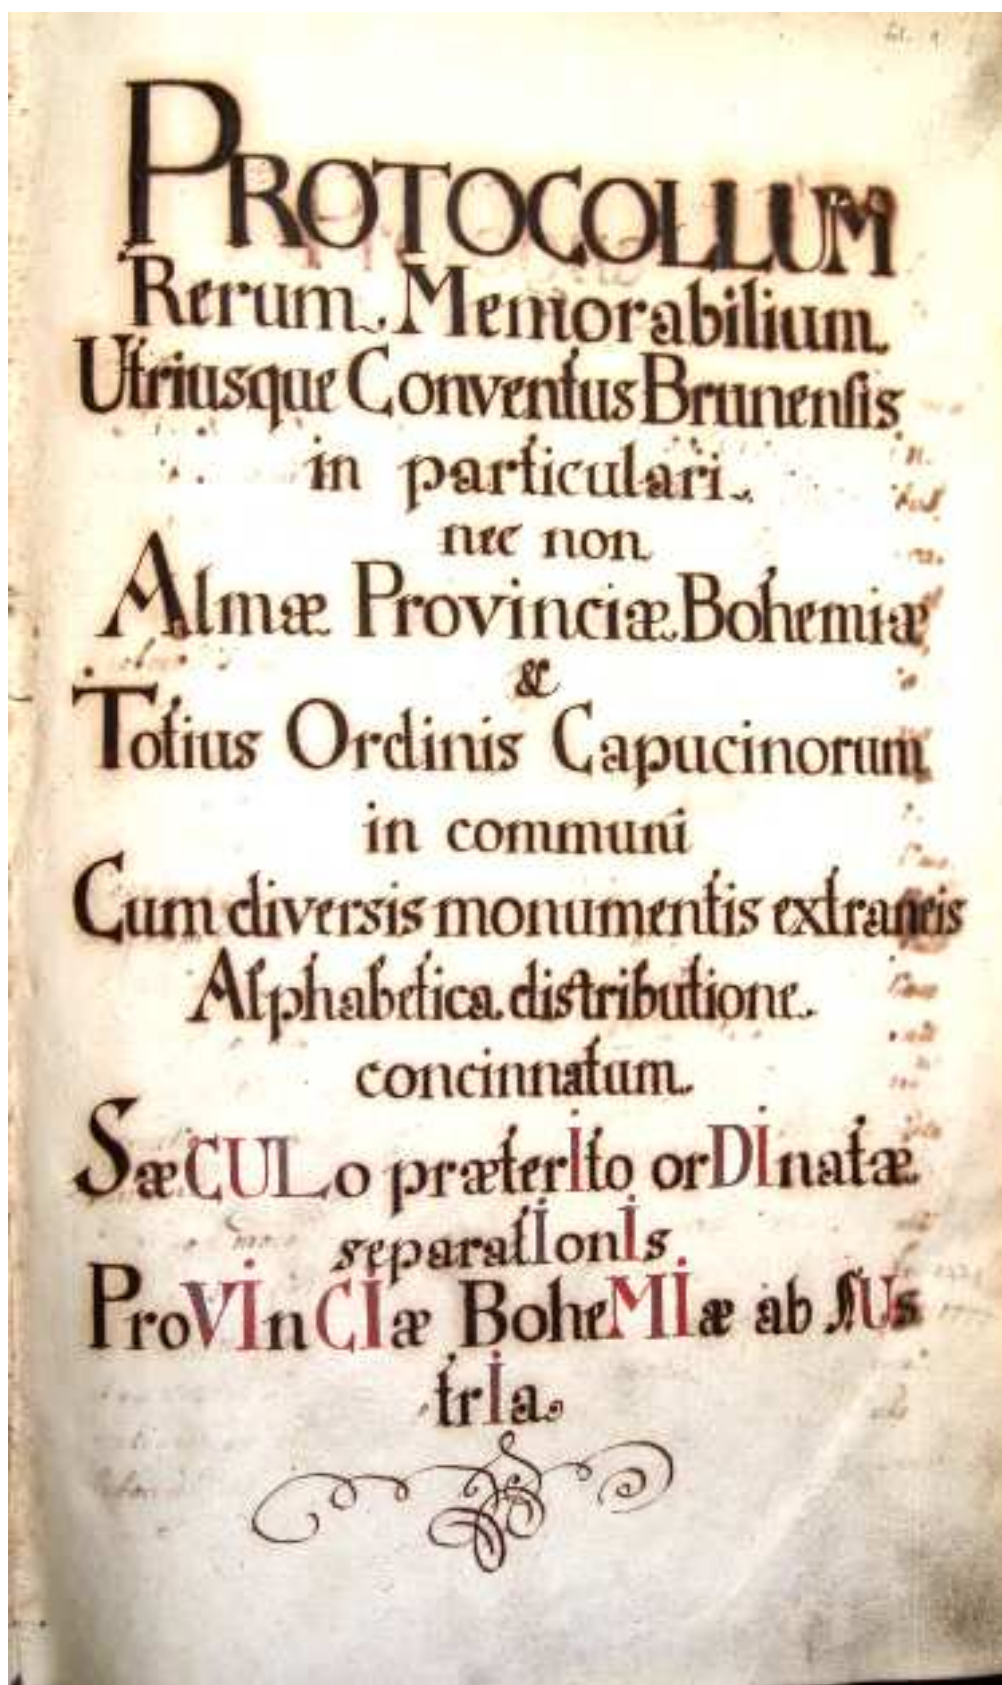 fol. 1
PROTOCOLLUM
Rerum Memorabilium
Utriusque Conventus Brunensis
in particulari
nec non
Almæ Provinciæ Bohemiæ
&
Totius Ordinis Capucinorum
in communi
Cum diversis monumentis extraneis
Alphabetica distributione
concinnatum.
SæCULo præterIto orDInatæ
separatIonIs
ProVInCIæ BoheMIæ ab AUs
trIa.